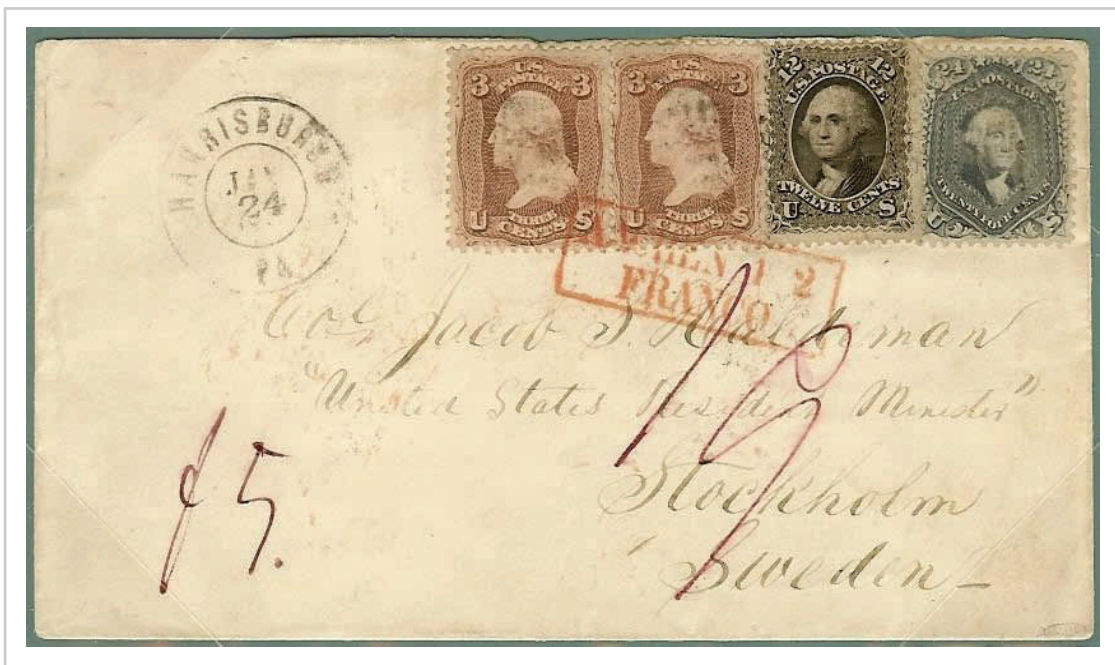 HARRISBURG
JAN
24
PA
3 U.S. 3
POSTAGE
THREE
U CENTS S
3 U.S. 3
POSTAGE
THREE
U CENTS S
12 12
U.S. POSTAGE
TWELVE CENTS
U S
24 24
U.S. POSTAGE
TWENTY FOUR CENTS
U S
AACHEN 2
FRANCO
Col. Jacob S. Haldeman
"United States Resident Minister"
Stockholm
Sweden
f 5.